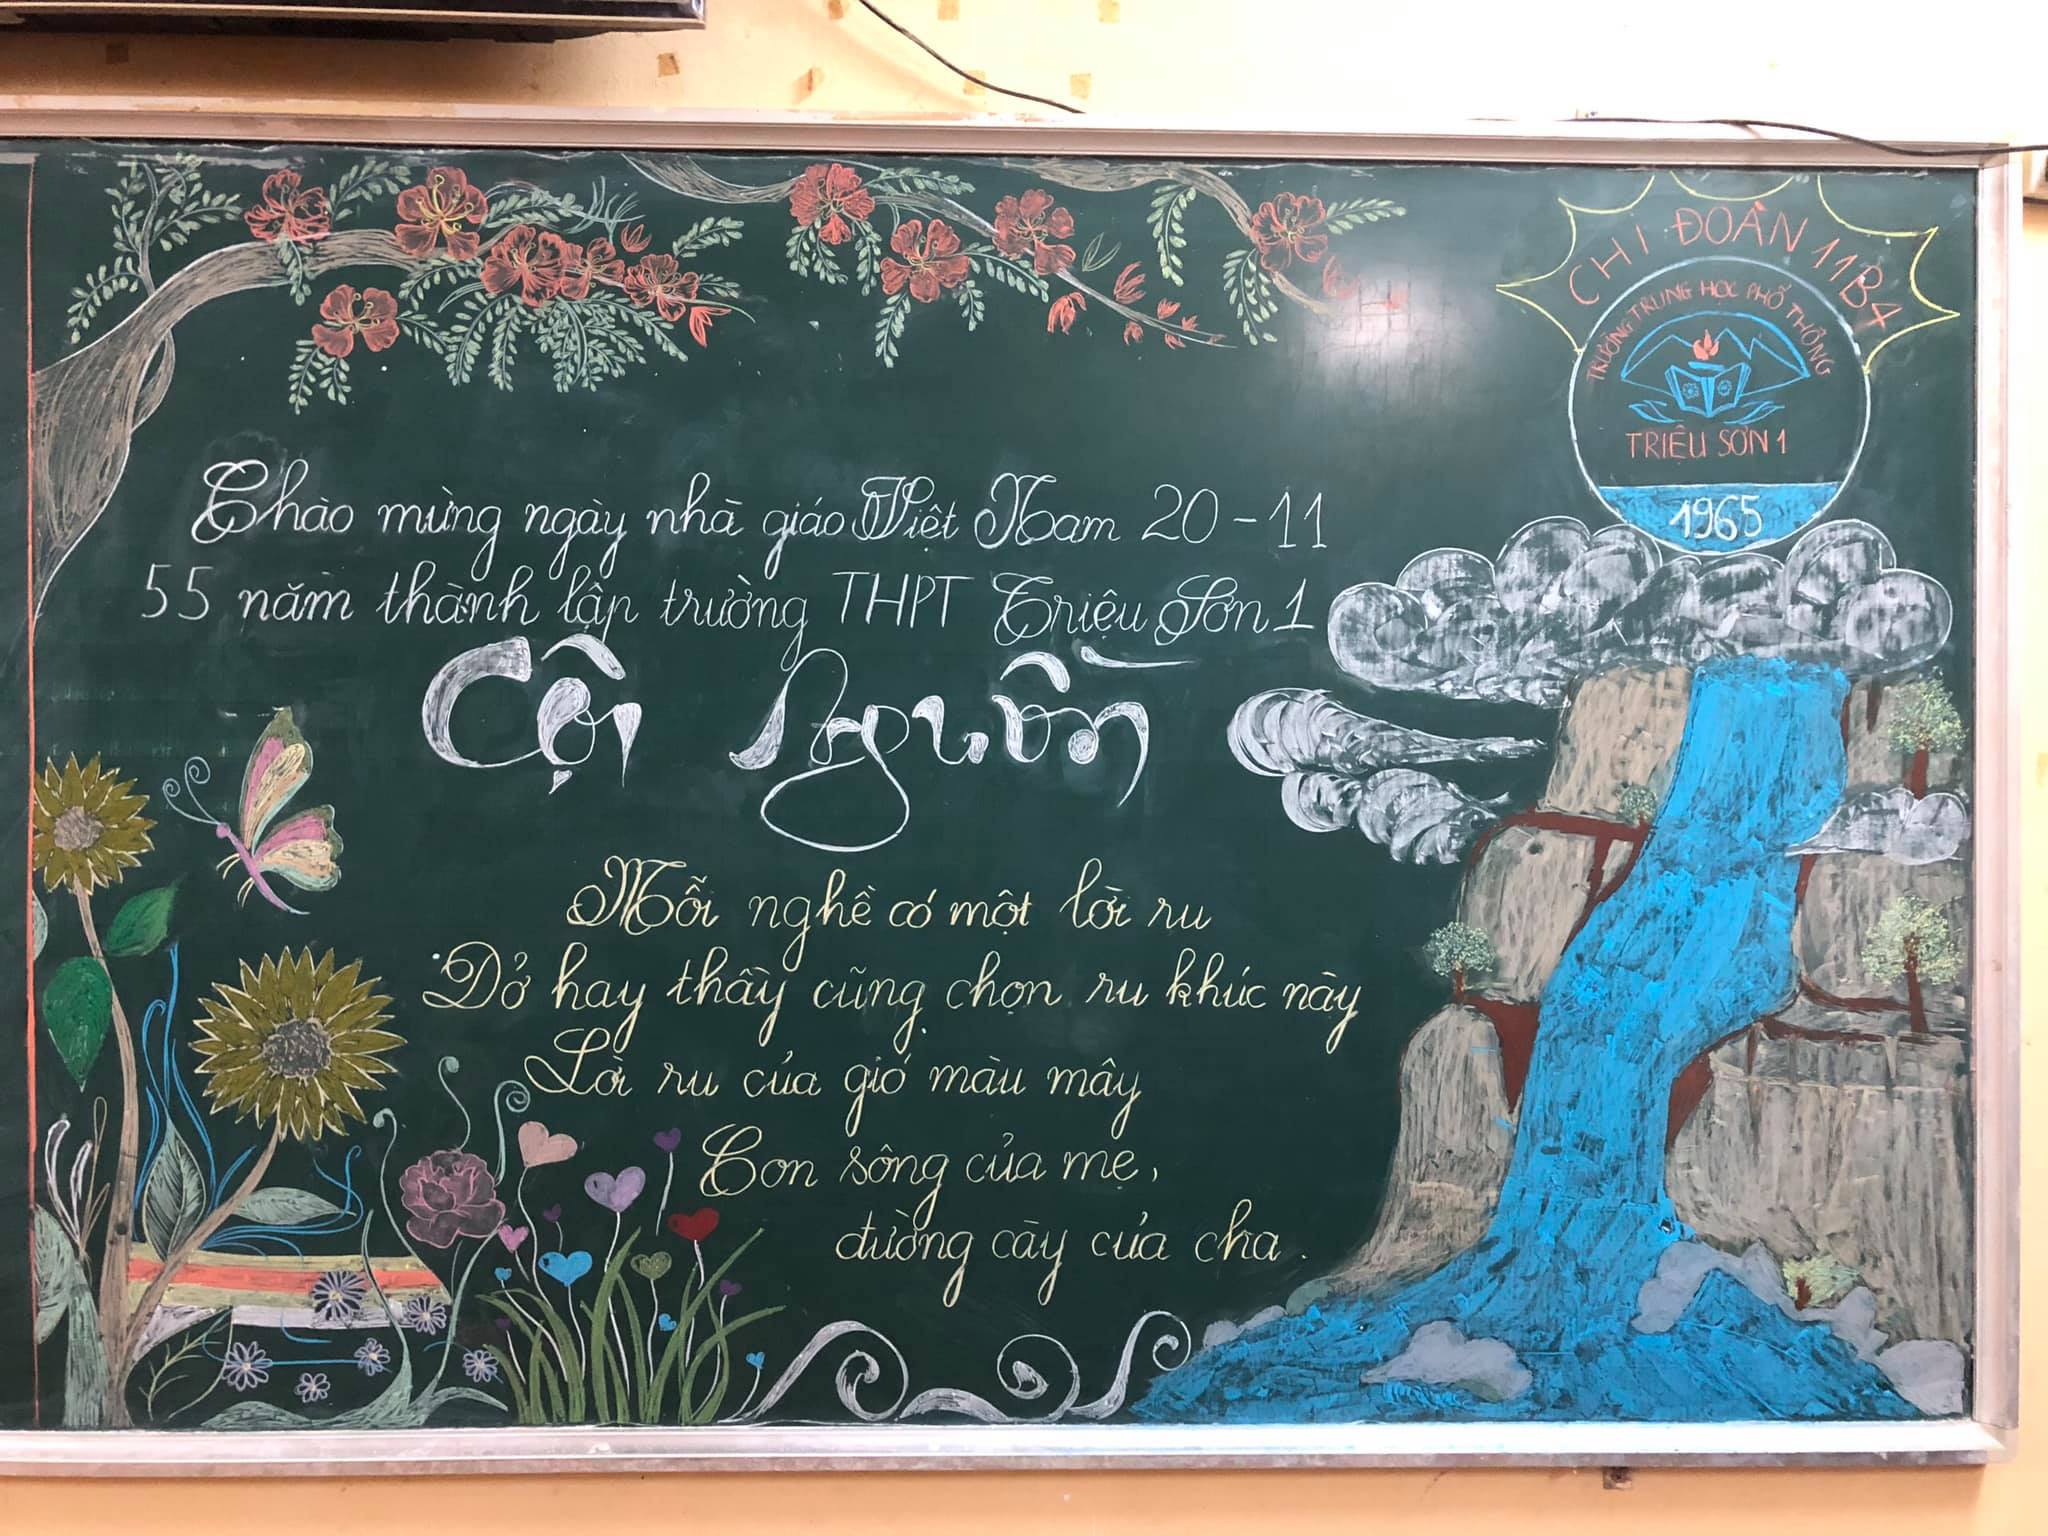 CHI ĐOÀN 11B4
TRƯỜNG TRUNG HỌC PHỔ THÔNG
TRIỆU SƠN 1
1965
Chào mừng ngày nhà giáo Việt Nam 20-11
55 năm thành lập trường THPT Triệu Sơn 1
Cội Nguồn
Mỗi nghề có một lời ru
Dở hay thầy cũng chọn ru khúc này
Lời ru của gió màu mây
Con sông của mẹ,
đường cày của cha.